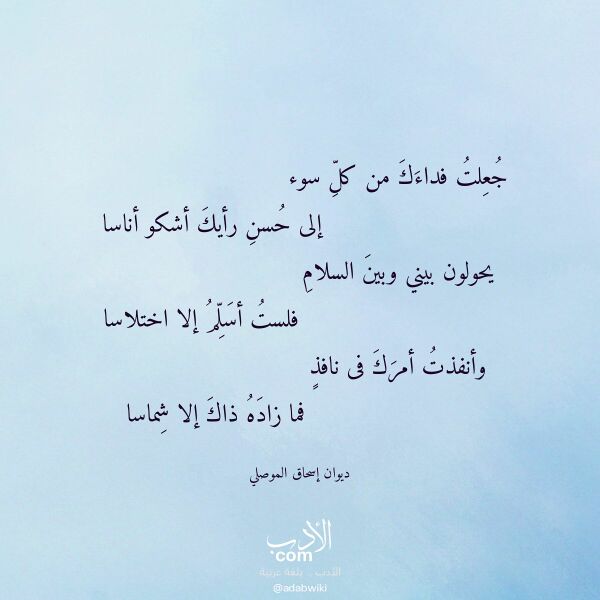 جُعِلتُ فداءَكَ من كلِّ سوء
إلى حُسنِ رأيكَ أشكو أناسا
يحولون بيني وبينَ السلامِ
فلستُ أسَلِّمُ إلا اختلاسا
وأنفذتُ أمرَكَ فى نافذٍ
فما زادَهُ ذاكَ إلا شِماسا
ديوان إسحاق الموصلي
الأدب
com
الأدب .. بلغة عربية
@adabwiki